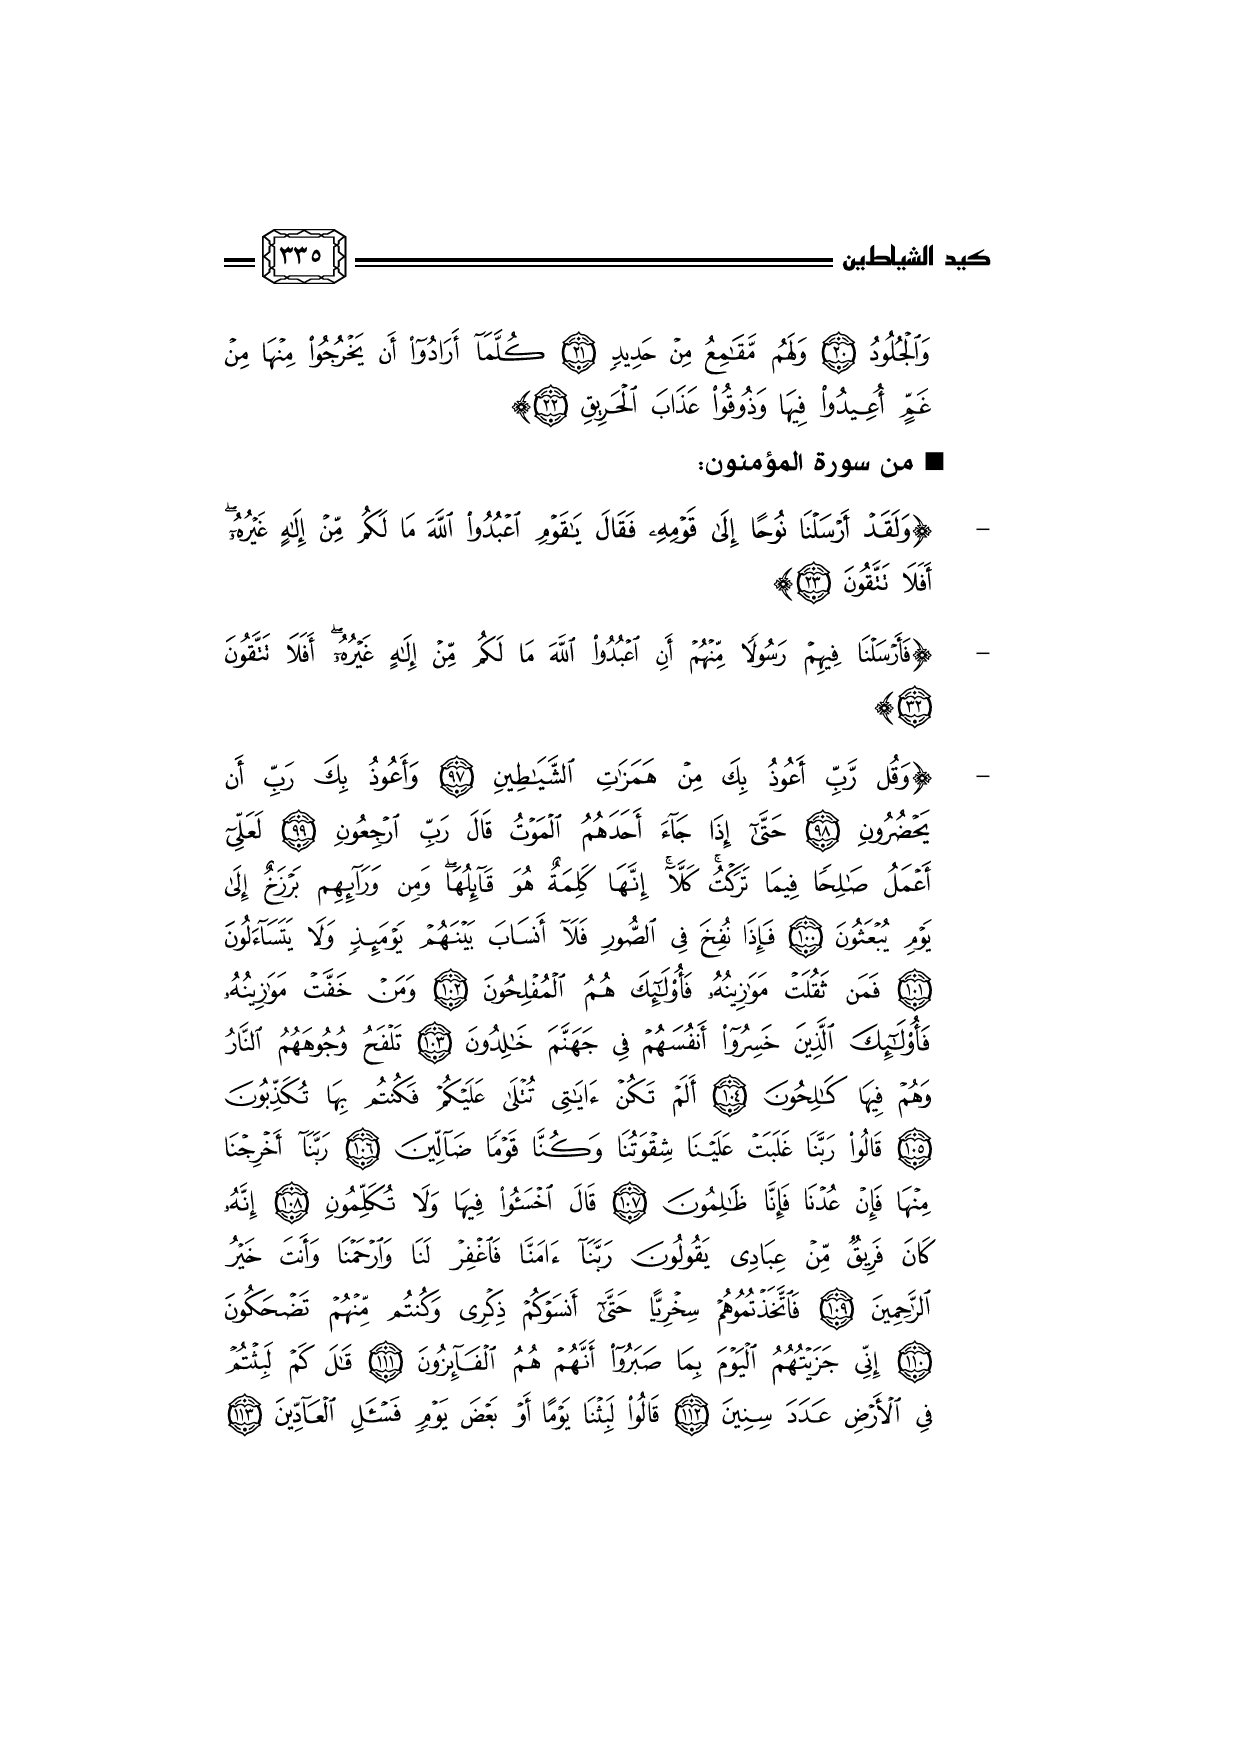 كيد الشياطين ٣٣٥
وَٱلْجُلُودُ ۝٢٠ وَلَهُم مَّقَٰمِعُ مِنْ حَدِيدٍ ۝٢١ كُلَّمَآ أَرَادُوٓا۟ أَن يَخْرُجُوا۟ مِنْهَا مِنْ
غَمٍّ أُعِيدُوا۟ فِيهَا وَذُوقُوا۟ عَذَابَ ٱلْحَرِيقِ ۝٢٢﴾
■ من سورة المؤمنون:
- ﴿وَلَقَدْ أَرْسَلْنَا نُوحًا إِلَىٰ قَوْمِهِۦ فَقَالَ يَٰقَوْمِ ٱعْبُدُوا۟ ٱللَّهَ مَا لَكُم مِّنْ إِلَٰهٍ غَيْرُهُۥٓ ۖ
أَفَلَا تَتَّقُونَ ۝٢٣﴾
- ﴿فَأَرْسَلْنَا فِيهِمْ رَسُولًا مِّنْهُمْ أَنِ ٱعْبُدُوا۟ ٱللَّهَ مَا لَكُم مِّنْ إِلَٰهٍ غَيْرُهُۥٓ ۖ أَفَلَا تَتَّقُونَ
۝٣٢﴾
- ﴿وَقُل رَّبِّ أَعُوذُ بِكَ مِنْ هَمَزَٰتِ ٱلشَّيَٰطِينِ ۝٩٧ وَأَعُوذُ بِكَ رَبِّ أَن
يَحْضُرُونِ ۝٩٨ حَتَّىٰٓ إِذَا جَآءَ أَحَدَهُمُ ٱلْمَوْتُ قَالَ رَبِّ ٱرْجِعُونِ ۝٩٩ لَعَلِّىٓ
أَعْمَلُ صَٰلِحًا فِيمَا تَرَكْتُ ۚ كَلَّآ ۚ إِنَّهَا كَلِمَةٌ هُوَ قَآئِلُهَا ۖ وَمِن وَرَآئِهِم بَرْزَخٌ إِلَىٰ
يَوْمِ يُبْعَثُونَ ۝١٠٠ فَإِذَا نُفِخَ فِى ٱلصُّورِ فَلَآ أَنسَابَ بَيْنَهُمْ يَوْمَئِذٍ وَلَا يَتَسَآءَلُونَ
۝١٠١ فَمَن ثَقُلَتْ مَوَٰزِينُهُۥ فَأُو۟لَٰٓئِكَ هُمُ ٱلْمُفْلِحُونَ ۝١٠٢ وَمَنْ خَفَّتْ مَوَٰزِينُهُۥ
فَأُو۟لَٰٓئِكَ ٱلَّذِينَ خَسِرُوٓا۟ أَنفُسَهُمْ فِى جَهَنَّمَ خَٰلِدُونَ ۝١٠٣ تَلْفَحُ وُجُوهَهُمُ ٱلنَّارُ
وَهُمْ فِيهَا كَٰلِحُونَ ۝١٠٤ أَلَمْ تَكُنْ ءَايَٰتِى تُتْلَىٰ عَلَيْكُمْ فَكُنتُم بِهَا تُكَذِّبُونَ
۝١٠٥ قَالُوا۟ رَبَّنَا غَلَبَتْ عَلَيْنَا شِقْوَتُنَا وَكُنَّا قَوْمًا ضَآلِّينَ ۝١٠٦ رَبَّنَآ أَخْرِجْنَا
مِنْهَا فَإِنْ عُدْنَا فَإِنَّا ظَٰلِمُونَ ۝١٠٧ قَالَ ٱخْسَـُٔوا۟ فِيهَا وَلَا تُكَلِّمُونِ ۝١٠٨ إِنَّهُۥ
كَانَ فَرِيقٌ مِّنْ عِبَادِى يَقُولُونَ رَبَّنَآ ءَامَنَّا فَٱغْفِرْ لَنَا وَٱرْحَمْنَا وَأَنتَ خَيْرُ
ٱلرَّٰحِمِينَ ۝١٠٩ فَٱتَّخَذْتُمُوهُمْ سِخْرِيًّا حَتَّىٰٓ أَنسَوْكُمْ ذِكْرِى وَكُنتُم مِّنْهُمْ تَضْحَكُونَ
۝١١٠ إِنِّى جَزَيْتُهُمُ ٱلْيَوْمَ بِمَا صَبَرُوٓا۟ أَنَّهُمْ هُمُ ٱلْفَآئِزُونَ ۝١١١ قَٰلَ كَمْ لَبِثْتُمْ
فِى ٱلْأَرْضِ عَدَدَ سِنِينَ ۝١١٢ قَالُوا۟ لَبِثْنَا يَوْمًا أَوْ بَعْضَ يَوْمٍ فَسْـَٔلِ ٱلْعَآدِّينَ ۝١١٣